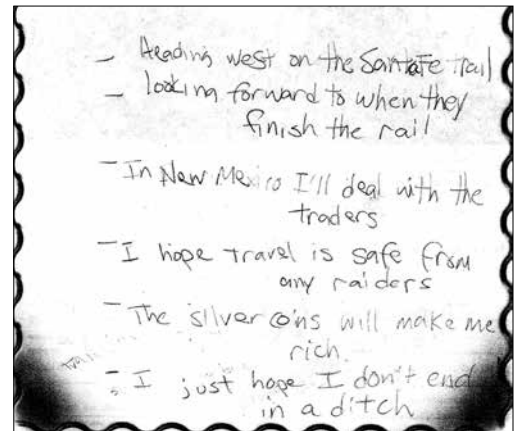 - Heading west on the Santa Fe trail
- looking forward to when they
finish the rail
- In New Mexico I'll deal with the
traders
- I hope travel is safe from
any raiders
- The silver coins will make me
rich.
- I just hope I don't end
in a ditch